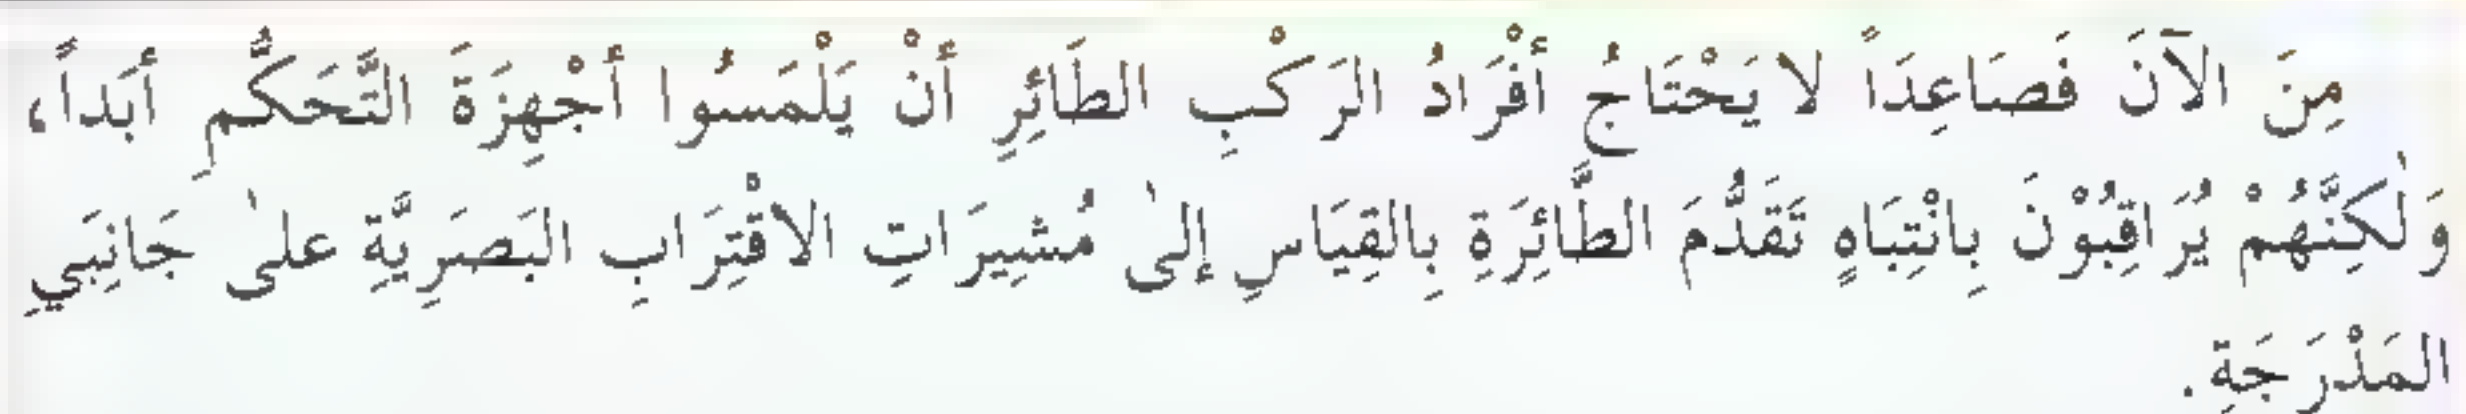 مِنَ الآنَ فَصَاعِدَاً لا يَحْتَاجُ أَفْرَادُ الرَكْبِ الطَائِرِ أَنْ يَلْمَسُوا أَجْهِزَةَ التَّحَكُّمِ أَبَداً،
وَلٰكِنَّهُمْ يُرَاقِبُوْنَ بِانْتِبَاهٍ تَقَدُّمَ الطَّائِرَةِ بِالقِيَاسِ إِلىٰ مُشِيرَاتِ الاقْتِرَابِ البَصَرِيَّةِ علىٰ جَانِبَيِ
المَدْرَجَةِ.